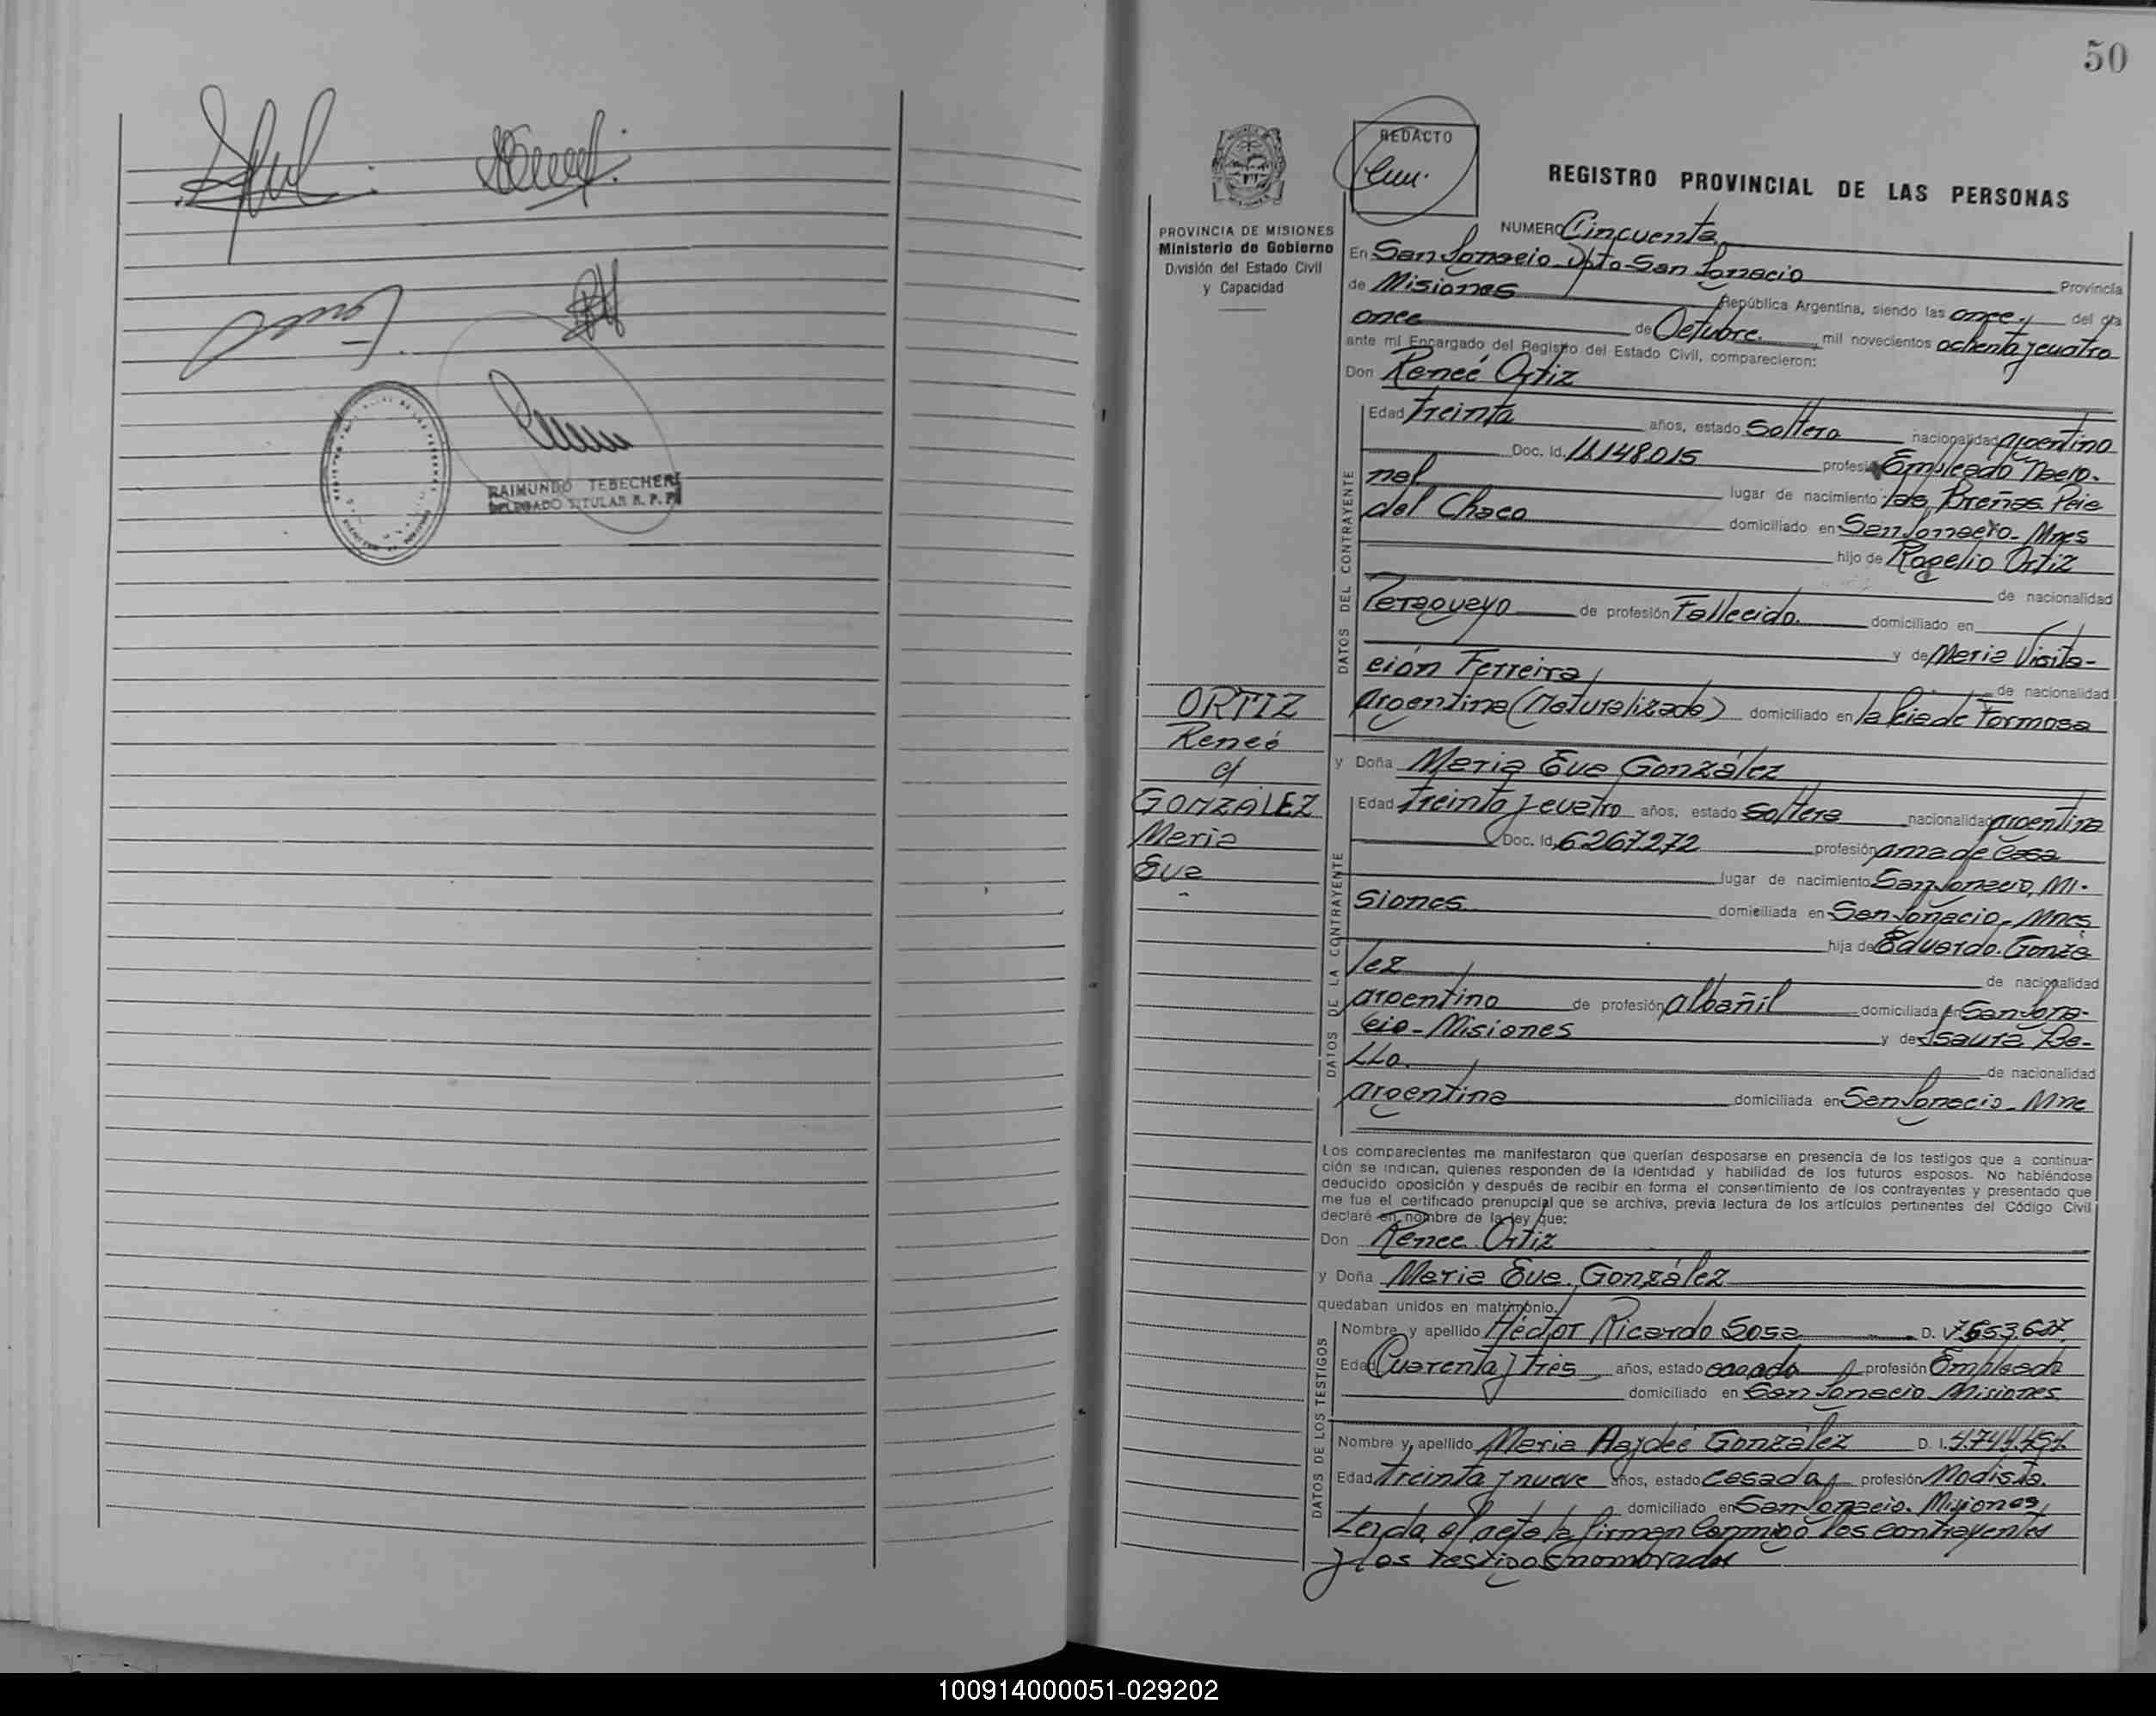 RAIMUNDO TEBECHERI
DELEGADO TITULAR R. P. P.
50
REDACTO
REGISTRO PROVINCIAL DE LAS PERSONAS
PROVINCIA DE MISIONES
Ministerio de Gobierno
División del Estado Civil
y Capacidad
NUMERO Cincuenta
En San Ignacio Dpto San Ignacio Provincia
de Misiones República Argentina, siendo las once y del día
once de Octubre mil novecientos ochenta y cuatro
ante mí Encargado del Registro del Estado Civil, comparecieron:
Don Reneé Ortiz
DATOS DEL CONTRAYENTE
Edad treinta años, estado soltero nacionalidad argentino
Doc. Id. 11.148.015 profesión Empleado Nacio-
nal lugar de nacimiento las Breñas Pcia
del Chaco domiciliado en San Ignacio- Mnes
hijo de Rogelio Ortiz
de nacionalidad
Paraguayo de profesión Fallecido domiciliado en
y de Maria Visita-
ción Ferreira de nacionalidad
argentina (naturalizada) domiciliado en la Pcia de Formosa
ORTIZ
Reneé
c/
GONZALEZ
Maria
Eva
y Doña Maria Eva González
DATOS DE LA CONTRAYENTE
Edad treinta y cuatro años, estado soltera nacionalidad argentina
Doc. Id. 6.267.272 profesión ama de casa
lugar de nacimiento San Ignacio, Mi-
siones domiciliada en San Ignacio- Mnes
hija de Eduardo Gonza
lez de nacionalidad
argentino de profesión albañil domiciliada en San Igna-
cio- Misiones y de Isaura Be-
LLo de nacionalidad
argentina domiciliada en San Ignacio- Mne
Los comparecientes me manifestaron que querían desposarse en presencia de los testigos que a continua-
ción se indican, quienes responden de la identidad y habilidad de los futuros esposos. No habiéndose
deducido oposición y después de recibir en forma el consentimiento de los contrayentes y presentado que
me fue el certificado prenupcial que se archiva, previa lectura de los artículos pertinentes del Código Civil
declaré en nombre de la ley que:
Don Renee Ortiz
y Doña Maria Eva González
quedaban unidos en matrimonio.
DATOS DE LOS TESTIGOS
Nombre y apellido Héctor Ricardo Sosa D.
Edad Cuarenta y tres años, estado casado profesión Empleado
domiciliado en San Ignacio Misiones
Nombre y apellido Maria Haydeé González D. I.
Edad treinta y nueve años, estado casada profesión Modista
domiciliado en San Ignacio. Misiones
Leida el acta la firman conmigo los contrayentes
y los testigos nombrados
100914000051-029202